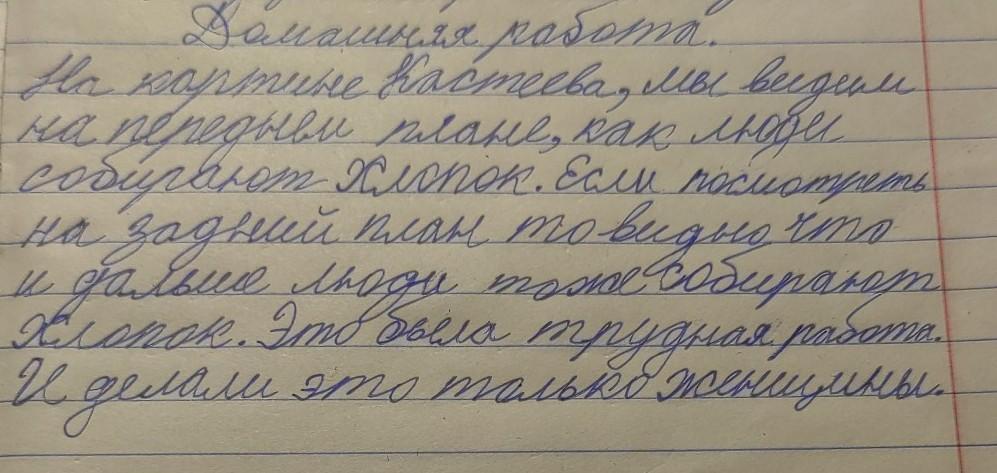 Домашняя работа.
На картине Кастеева, мы видим
на переднем плане, как люди
собирают хлопок. Если посмотреть
на задний план то видно, что
и дальше люди тоже собирают
хлопок. Это была трудная работа.
И делали это только женщины.